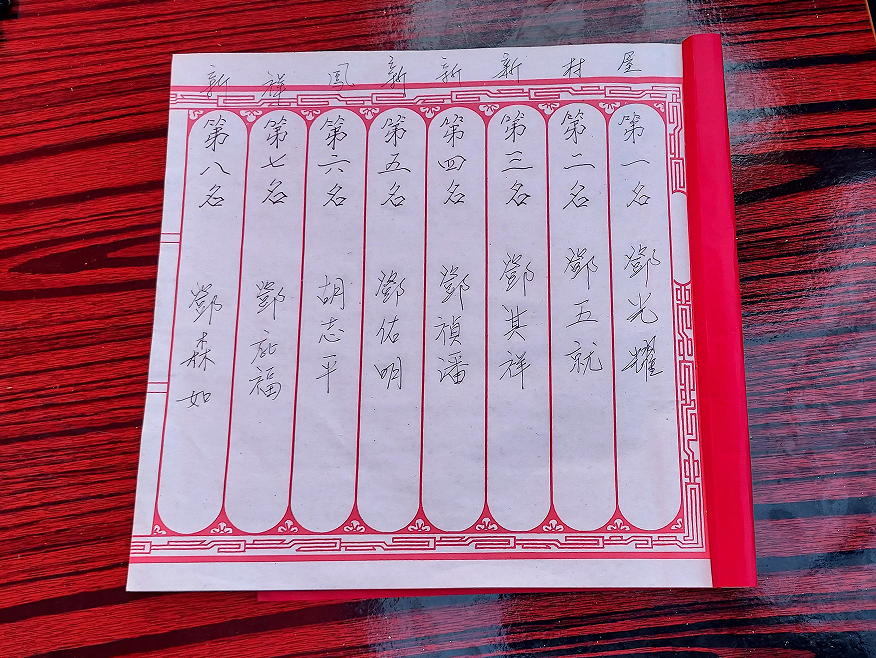 屋
村
新
新
新
鳳
祥
新
第一名 鄧光耀
第二名 鄧五就
第三名 鄧其祥
第四名 鄧禎潘
第五名 鄧佑明
第六名 胡志平
第七名 鄧 福
第八名 鄧森如